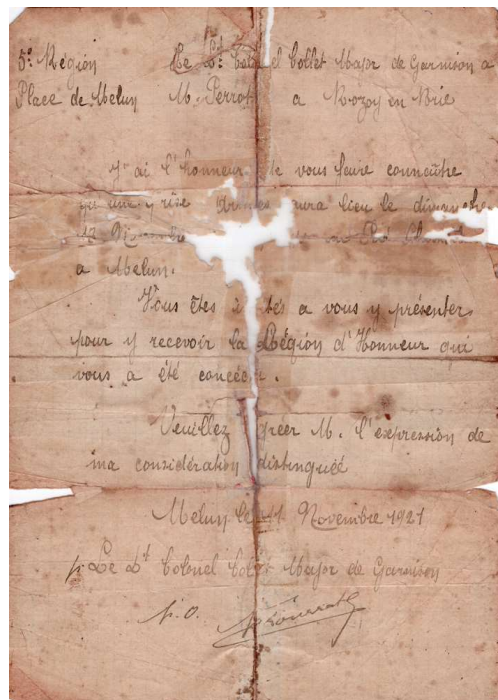 5e Région Le Lt Colonel Collet Major de Garnison a
Place de Melun M. Perrot a Rozoy en Brie
J'ai l'honneur de vous faire connaître
qu'une prise d'armes aura lieu le dimanche
a Melun.
Vous êtes invités a vous y présenter
pour y recevoir la Légion d'Honneur qui
vous a été concédé.
Veuillez agréer M. l'expression de
ma considération distinguée
Melun le Novembre 1921
p. Le Lt Colonel Major de Garnison
p.o.